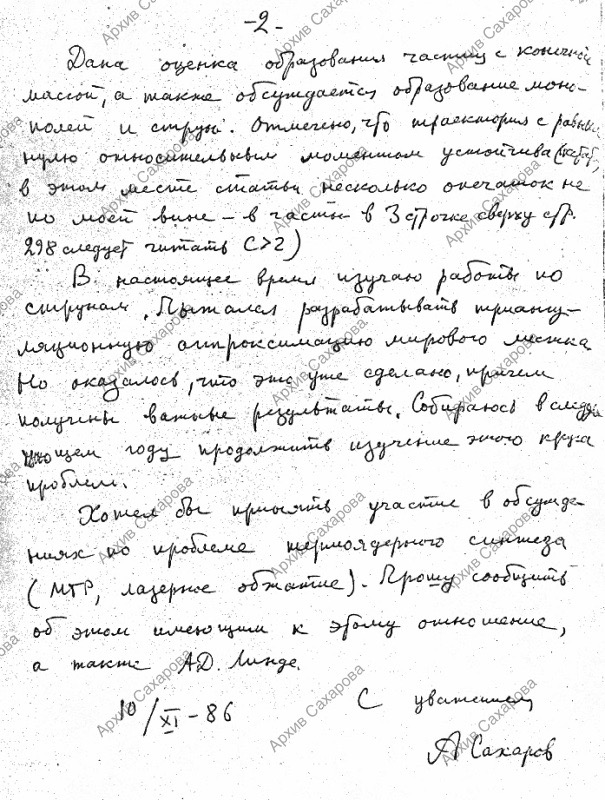 -2-
Дана оценка образования частиц с конечной
массой, а также обсуждается образование моно-
полей и струн. Отмечено, что траектория с равным
нулю относительным моментом устойчива
в этом месте статьи несколько опечаток не
по моей вине - в частн в 3 строчке сверху стр.
298 следует читать C>2)
В настоящее время изучаю работы по
струнам. Пытался разрабатывать триангу-
ляционную аппроксимацию мирового листка
Но оказалось, что это уже сделано, причем
получены важные результаты. Собираюсь в следу
ющем году продолжить изучение этого круга
проблем.
Хотел бы принять участие в обсужде-
ниях по проблеме термоядерного синтеза
(МТР, лазерное обжатие). Прошу сообщить
об этом имеющим к этому отношение,
а также А.Д. Линде.
10/XI-86 С уважением,
А Сахаров
Архив Сахарова